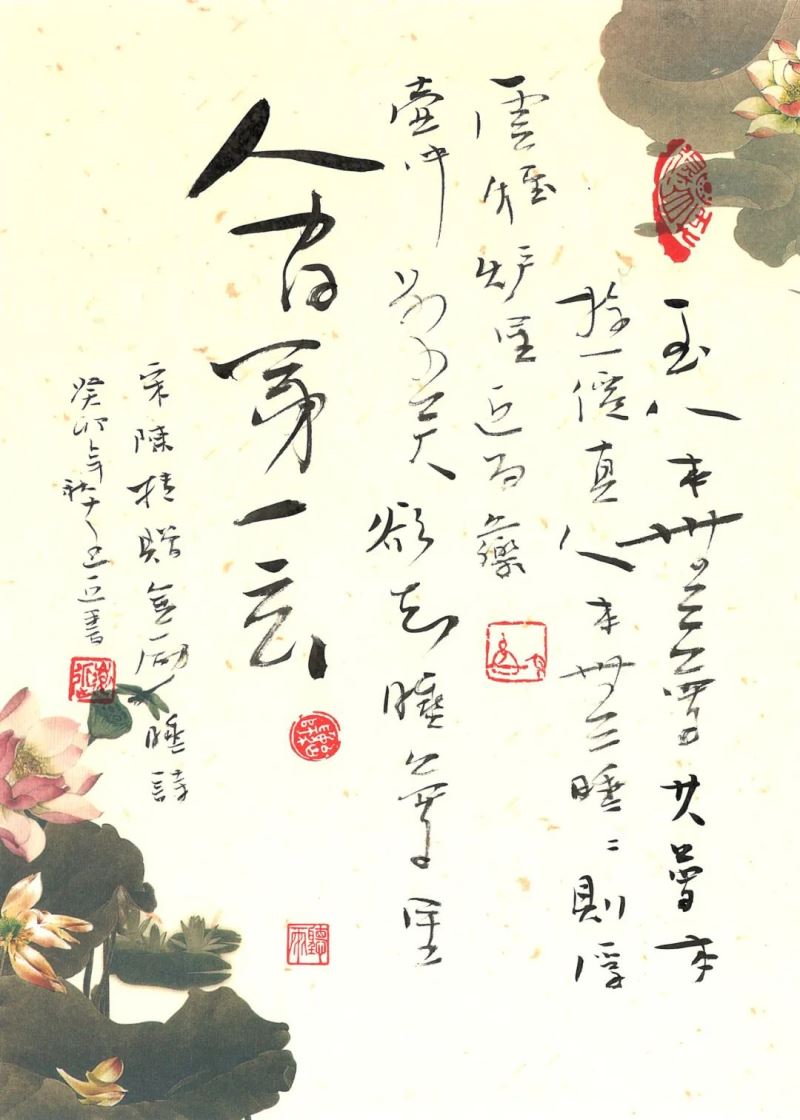 至人本無夢其夢本
遊僊真人本無睡〻則浮
雲煙炉里近為藥
壺中別有天欲知睡夢里
人間第一玄
宋陳摶贈金勵睡詩
癸卯年秋書
聽雨